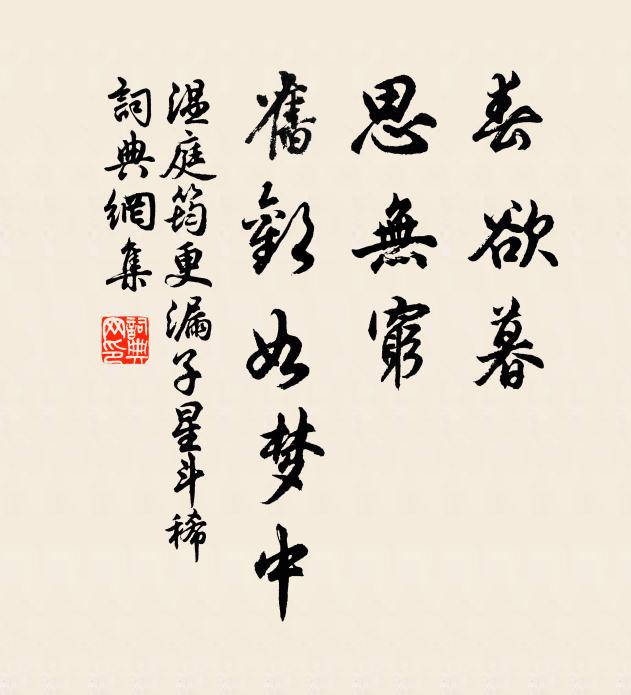 春欲暮
思無窮
舊歡如梦中
温庭筠更漏子星斗稀
詞典網集
詞典网印